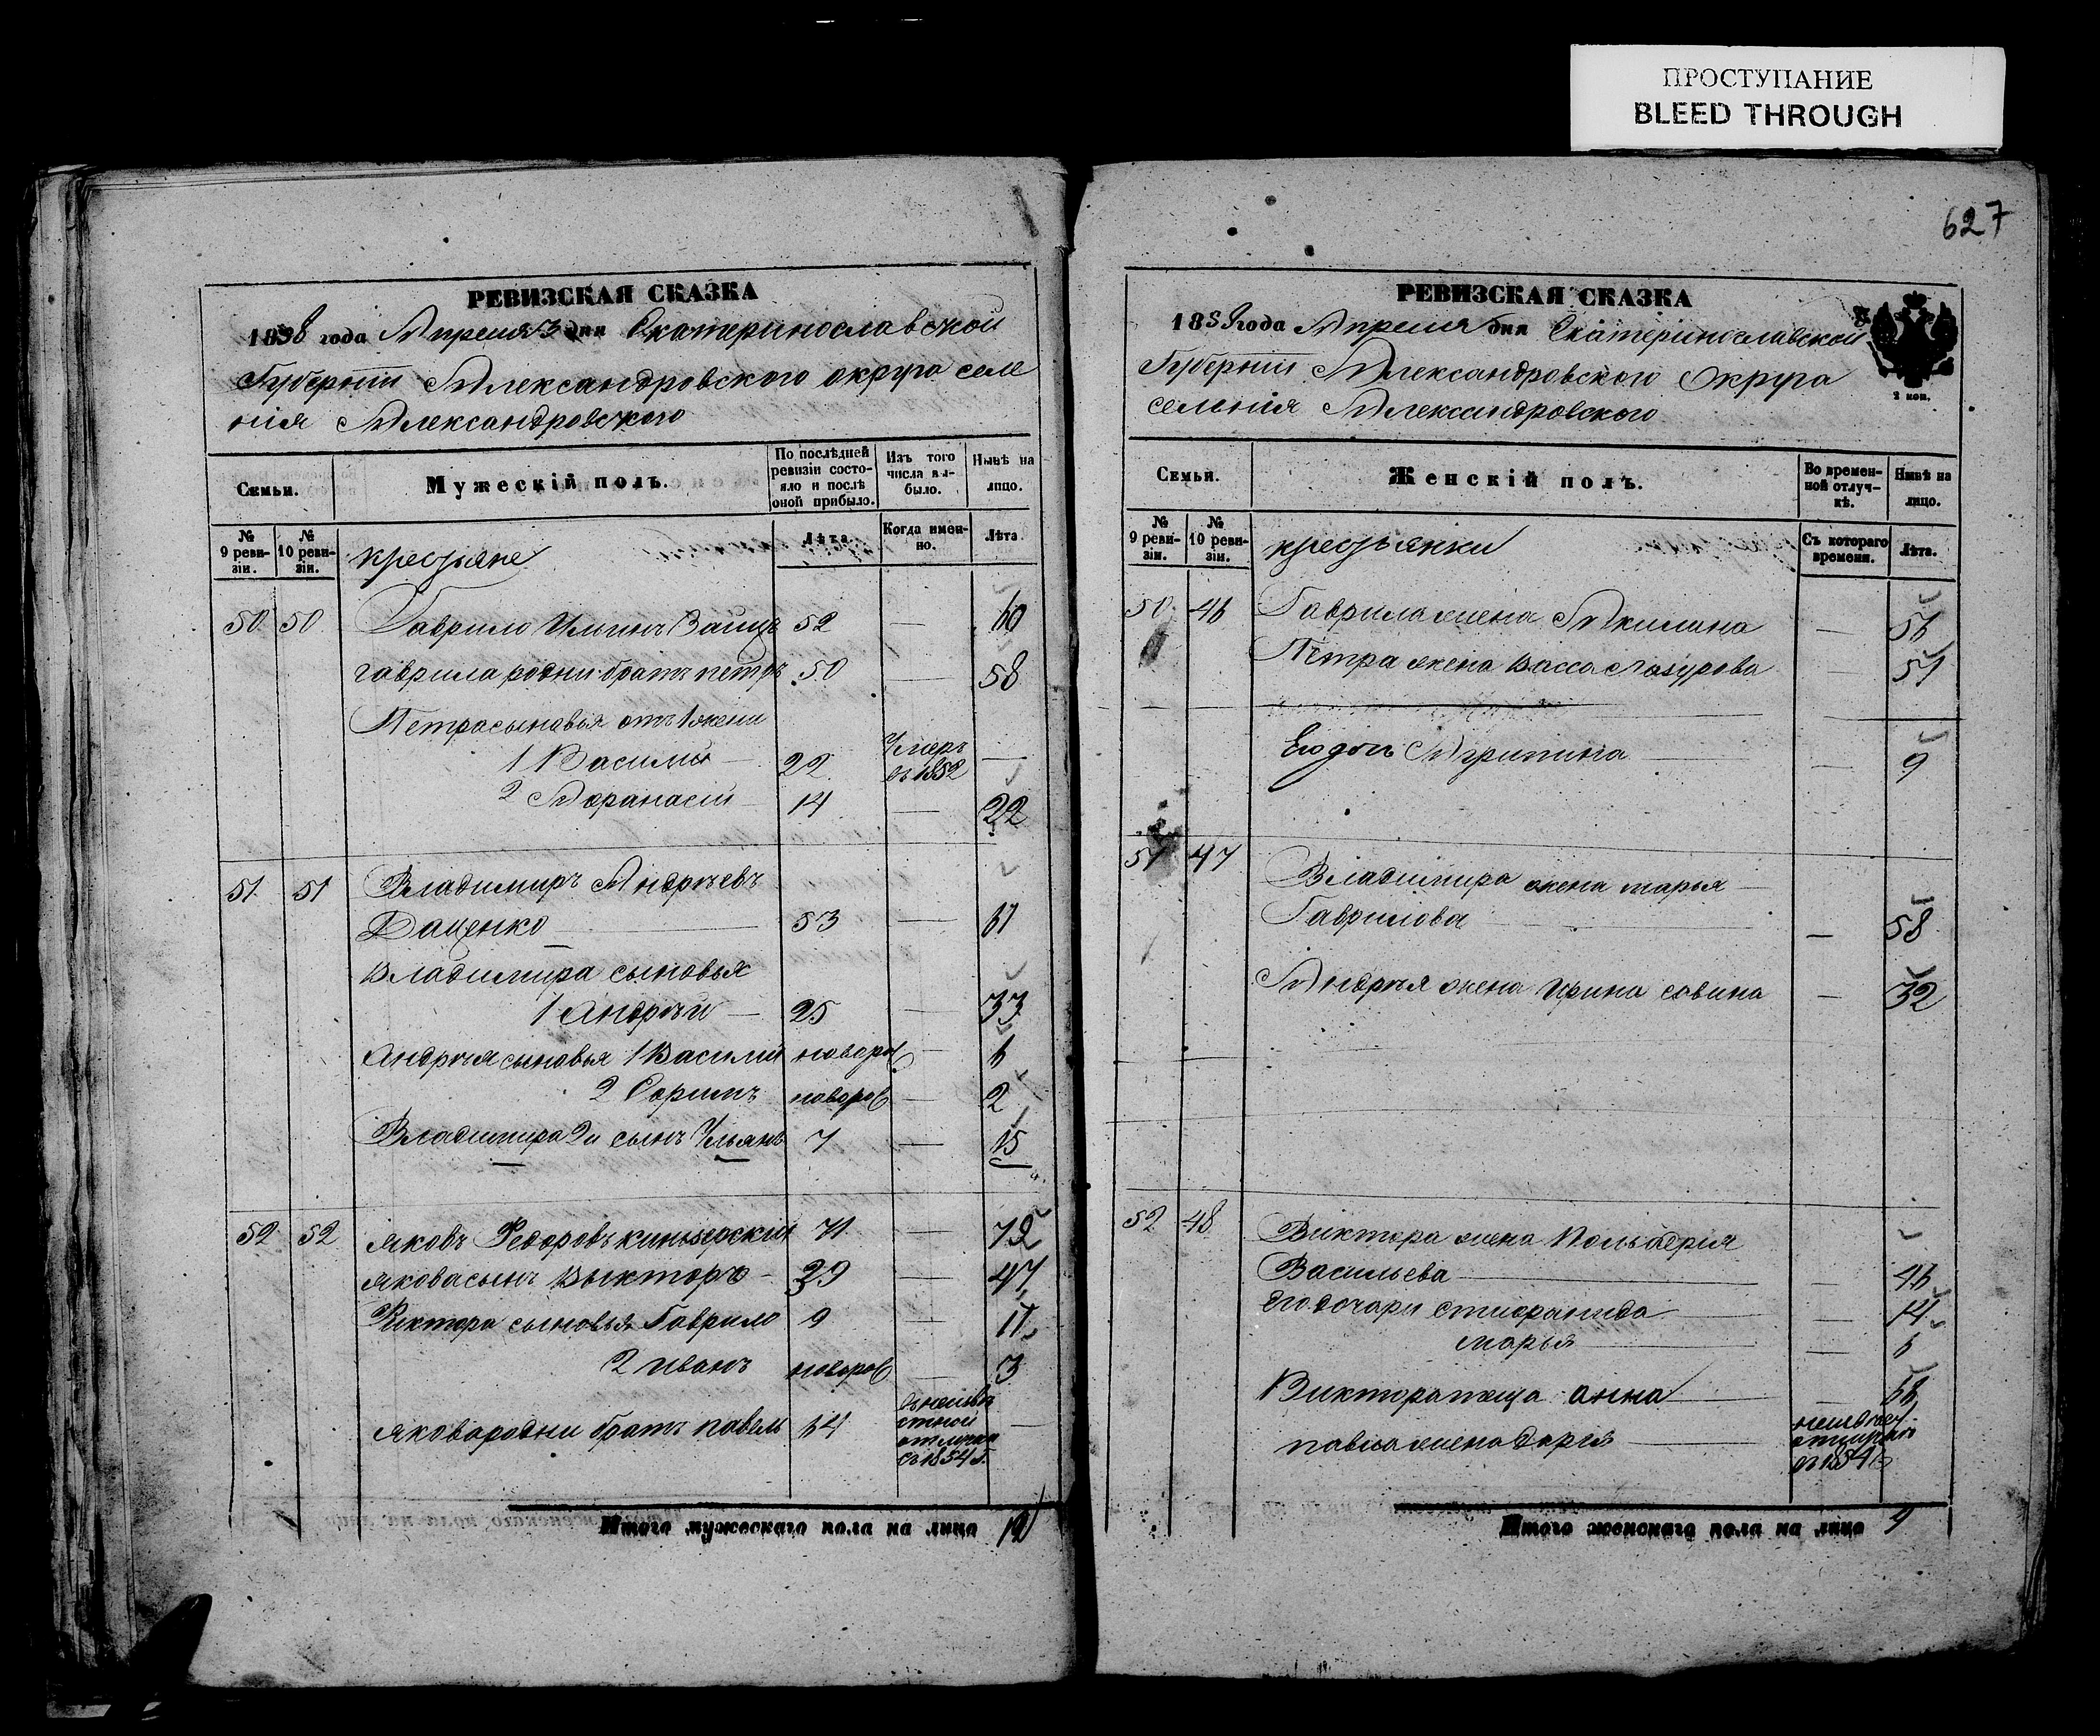 ПРОСТУПАНИЕ
BLEED THROUGH
627
РЕВИЗСКАЯ СКАЗКА
1858 года Апреля 3 дня Екатеринославской
Губернии Александровского округа селе
ния Александровского
Семьи.
Мужескій полъ.
По послѣдней ревизіи состояло и послѣ оной прибыло.
Изъ того числа выбыло.
Нынѣ на лицо.
№ 9 ревизіи.
№ 10 ревизіи.
крестьяне
Лѣта.
Когда именно.
Лѣта.
50 50 Гаврило Ильинъ Заицъ 52 — 60
гаврила родни братъ петръ 50 — 58
Петра сыновья отъ 1 жени
1 Василий — 22 Умеръ въ 1852 —
2 Афанасий — 14 — 22
51 51 Владимиръ Андреевъ
Даценко — 53 — 61
Владимира сыновья
1 Андрѣй — 25 — 33
Андрѣя сыновья 1 Василий новорож — 6
2 новорож — 2
Владимира 2й сынъ Ульянъ 7 — 15
52 52 Яковъ Федоровъ 71 — 79
Якова сынъ Выкторъ — 39 — 47
Виктора сыновья Гаврило 9 — 17
2 иванъ новорож — 3
Якова родни братъ павелъ 64 съ 1854 г. —
Итого мужескаго пола на лицо 12
РЕВИЗСКАЯ СКАЗКА
1858 года Апреля дня Екатеринославской
Губернии Александровского Округа
селения Александровского
2 коп.
Семьи.
Женскій полъ.
Во временной отлучкѣ.
Нынѣ на лицо.
№ 9 ревизіи.
№ 10 ревизіи.
крестьянки
Съ котораго времени.
Лѣта.
50 46 Гаврила жена Акилина — 56
Петра жена Васса Лазурова — 51
Его дочь Агрипина — 9
51 47 Владимира жена марья —
Гаврилова — 58
Андрѣя жена Ирина савина — 32
52 48 Виктора жена
Васильева — 46
Его дочари — 14
марья — 6
Виктора теща анна — 66
павла жена Дарья — съ 1854
Итого женскаго пола на лицо 9